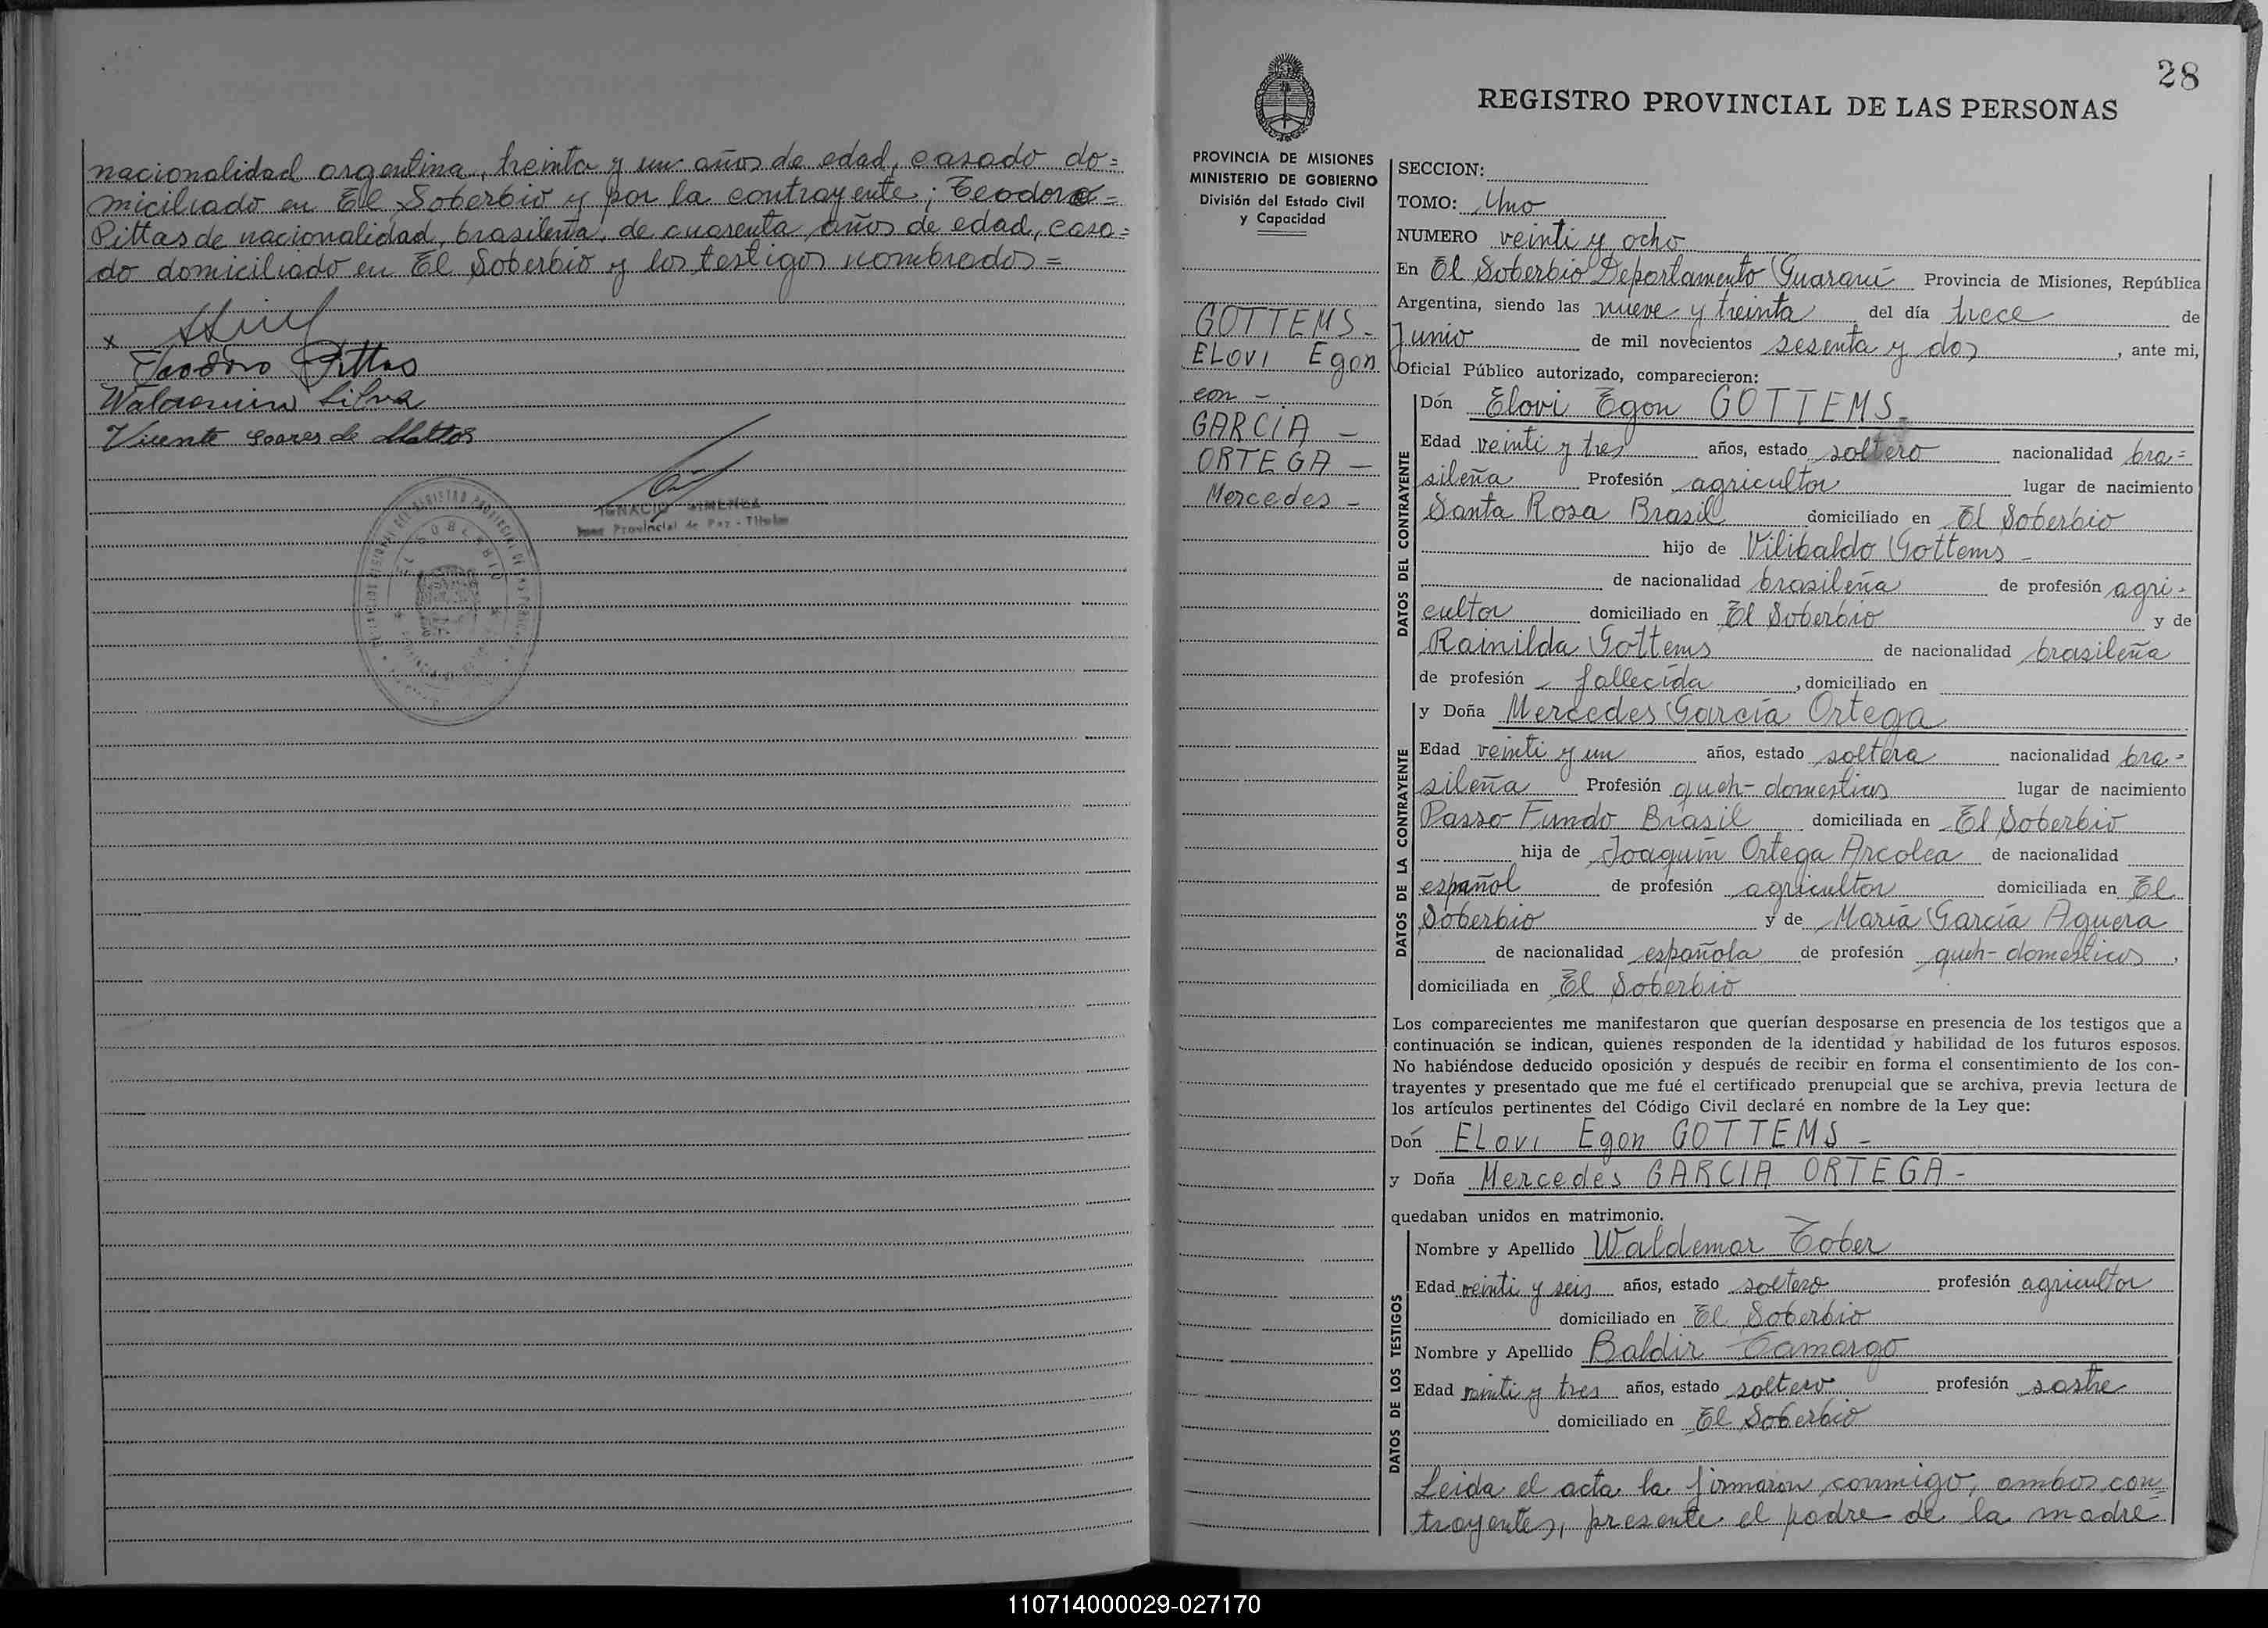 nacionalidad argentina, treinta y un años de edad, casado do=
miciliado en El Soberbio y por la contrayente; Teodoro=
Pittas de nacionalidad, brasileña, de cuarenta años de edad, casa=
do domiciliado en El Soberbio y los testigos nombrados=
x
Theodoro Pittas
Waldomiro Silva
Vicente Soares de Mattos
IGNACIO GIMENEZ
Juez Provincial de Paz - Titular
EL SOBERBIO
28
REGISTRO PROVINCIAL DE LAS PERSONAS
PROVINCIA DE MISIONES
MINISTERIO DE GOBIERNO
División del Estado Civil
y Capacidad
GOTTEMS-
ELOVI Egon
con -
GARCIA -
ORTEGA -
Mercedes -
SECCION:
TOMO: Uno
NUMERO veinti y ocho
En El Soberbio Departamento Guaraní Provincia de Misiones, República
Argentina, siendo las nueve y treinta del día trece de
Junio de mil novecientos sesenta y dos, ante mi,
Oficial Público autorizado, comparecieron:
DATOS DEL CONTRAYENTE
Dón Elovi Egon GOTTEMS-
Edad veinti y tres años, estado soltero nacionalidad bra=
sileña Profesión agricultor lugar de nacimiento
Santa Rosa Brasil domiciliado en El Soberbio
hijo de Vilibaldo Gottems-
de nacionalidad brasileña de profesión agri-
cultor domiciliado en El Soberbio y de
Rainilda Gottems de nacionalidad brasileña
de profesión - fallecida, domiciliado en
DATOS DE LA CONTRAYENTE
y Doña Mercedes García Ortega
Edad veinti y un años, estado soltera nacionalidad bra=
sileña Profesión queh-domesticos lugar de nacimiento
Passo Fundo Brasil domiciliada en El Soberbio
hija de Joaquin Ortega Arcolea de nacionalidad
español de profesión agricultor domiciliada en El
Soberbio y de María García Aguera
de nacionalidad española de profesión queh-domesticos,
domiciliada en El Soberbio
Los comparecientes me manifestaron que querían desposarse en presencia de los testigos que a
continuación se indican, quienes responden de la identidad y habilidad de los futuros esposos.
No habiéndose deducido oposición y después de recibir en forma el consentimiento de los con-
trayentes y presentado que me fué el certificado prenupcial que se archiva, previa lectura de
los artículos pertinentes del Código Civil declaré en nombre de la Ley que:
Dón ELOVI Egon GOTTEMS-
y Doña Mercedes GARCIA ORTEGA-
quedaban unidos en matrimonio.
DATOS DE LOS TESTIGOS
Nombre y Apellido Waldemar Tober
Edad veinti y seis años, estado soltero profesión agricultor
domiciliado en El Soberbio
Nombre y Apellido Baldir Camargo
Edad veinti y tres años, estado soltero profesión sastre
domiciliado en El Soberbio
Leida el acta la firmaron conmigo, ambos con=
trayentes, presente el padre de la madre
110714000029-027170